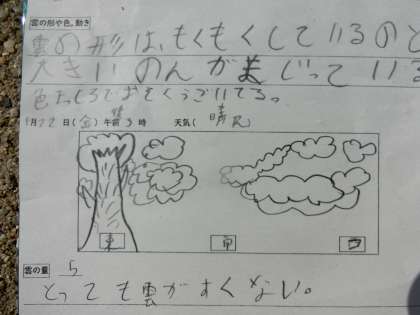 雲の形や色。動き
雲の形は、もくもくしているのと
大きいのんがまじっている
色はしろでおそくうごいてる。
月22日(金)午前3時 天気(晴れ)
東 南 西
雲の量 5
とっても雲がすくない。